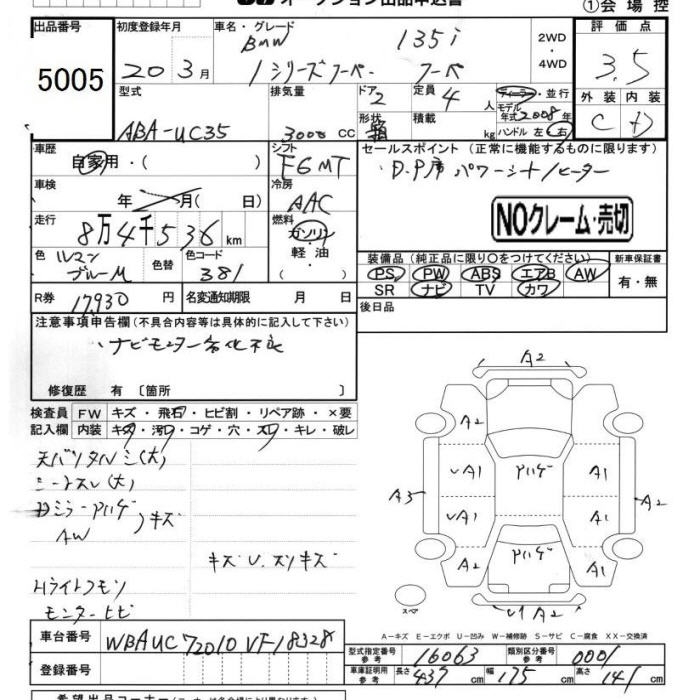 オークション出品申込書
①会場控
出品番号
5005
初度登録年月
20 3月
車名・グレード
BMW 135i
1シリーズクーペ クーペ
2WD
・
4WD
評価点
3.5
外装 内装
C D
型式
ABA-UC35
排気量
3000 CC
ドア
2
形状
定員
4 人
積載
kg
ディーラー・並行
モデル
年式 2008年
ハンドル 左・右
車歴
自家用・( )
シフト
F6MT
車検
年 月( 日)
冷房
AAC
走行
8万4千536km
燃料
ガソリン
軽油
色 ルマンブルーM
色替
色コード
381
R券
17,930 円
名変通知期限 月 日
セールスポイント (正常に機能するものに限ります)
・D.P席 パワーシート/ヒーター
NOクレーム・売切
装備品(純正品に限り○をつけてください)
PS PW ABS エアB AW
SR ナビ TV カワ
新車保証書
有・無
後日品
注意事項申告欄(不具合内容等は具体的に記入して下さい)
・ナビモニター劣化不良
修復歴 有 〔箇所 〕
検査員 FW キズ・飛石・ヒビ割・リペア跡・×要
記入欄 内装 キズ・汚レ・コゲ・穴・スレ・キレ・破レ
天バリタルミ(大)
シートスレ(大)
Dミラーハゲ
AW
キズ
キズU.スリキズ
Hライトクモリ
モニターヒビ
A2
A2
UA1 ハゲ A1
A3
A2
UA1 A1
A2 ハゲ A1
スペア
U1 A2
A-キズ E-エクボ U-凹み W-補修跡 S-サビ C-腐食 XX-交換済
車台番号
WBAUC72010VF18328
登録番号
型式指定番号
参考
16063
類別区分番号
参考
0001
車庫証明用
参考
長さ 437 cm 幅 175 cm 高さ 141 cm
希望出品コーナー